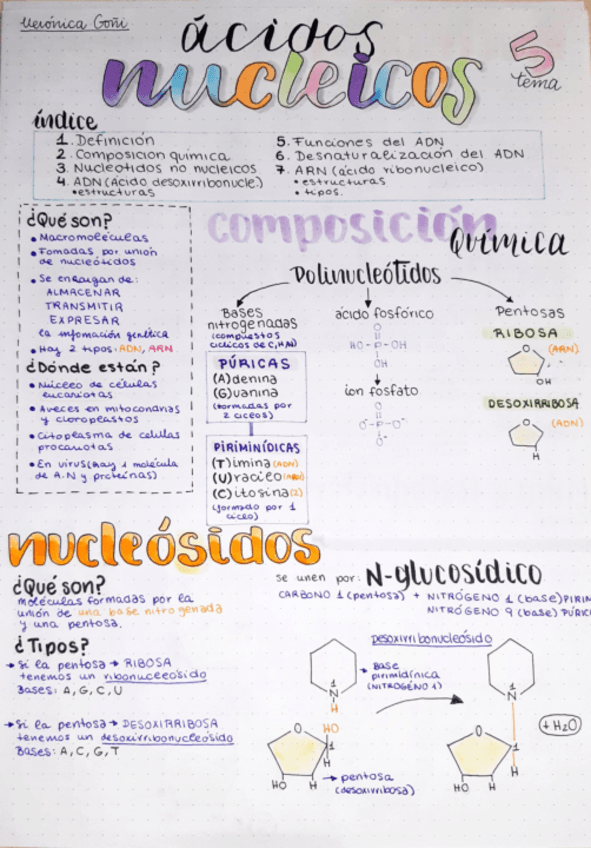 Verónica Goñi
ácidos
nucleicos
5
tema
índice
1. Definición
2. Composicion química
3. Nucleotidos no nucleicos
4. ADN (Ácido desoxirribonucle.)
• estructuras
5. Funciones del ADN
6. Desnaturalización del ADN
7. ARN (ácido ribonucleico)
• estructuras
• tipos.
¿Qué son?
• Macromoléculas
• Fomadas por unión
de nucleótidos
• Se encargan de:
ALMACENAR
TRANSMITIR
EXPRESAR
la infomación genética
• Hay 2 tipos: ADN, ARN
¿Dónde están?
• Núcleo de células
eucariotas
• Aveces en mitocondrias
y cloroplastos
• Citoplasma de celulas
procariotas
• En virus (hay 1 molécula
de A.N y proteínas)
composición
Química
Polinucleótidos
Bases
nitrogenadas
(compuestos
cíclicos de C, H, N)
PÚRICAS
(A)denina
(G)uanina
(formadas por
2 ciclos)
PIRIMINÍDICAS
(T)imina (ADN)
(U)racilo (ARN)
(C)itosina (2)
(formado por 1
ciclo)
ácido fosfórico
O
HO-P-OH
OH
ion fosfato
O
O⁻-P-O⁻
O⁻
Pentosas
RIBOSA
O
(ARN)
OH
DESOXIRRIBOSA
O
(ADN)
H
nucleósidos
¿Qué son?
moléculas formadas por la
unión de una base nitrogenada
y una pentosa.
¿Tipos?
→ Si la pentosa → RIBOSA
tenemos un ribonucleosido
Bases: A, G, C, U
→ Si la pentosa → DESOXIRRIBOSA
tenemos un desoxirribonucleósido
Bases: A, C, G, T
se unen por: N-glucosídico
CARBONO 1 (pentosa) + NITRÓGENO 1 (base) PIRIM
NITRÓGENO 9 (base) PÚRIC
Desoxirribonucleósido
→ Base
pirimidínica
(NITROGÉNO 1)
N
H
HO
O
1
H
HO
H
→ pentosa
(desoxirribosa)
N
O
1
H
HO
H
+ H₂O